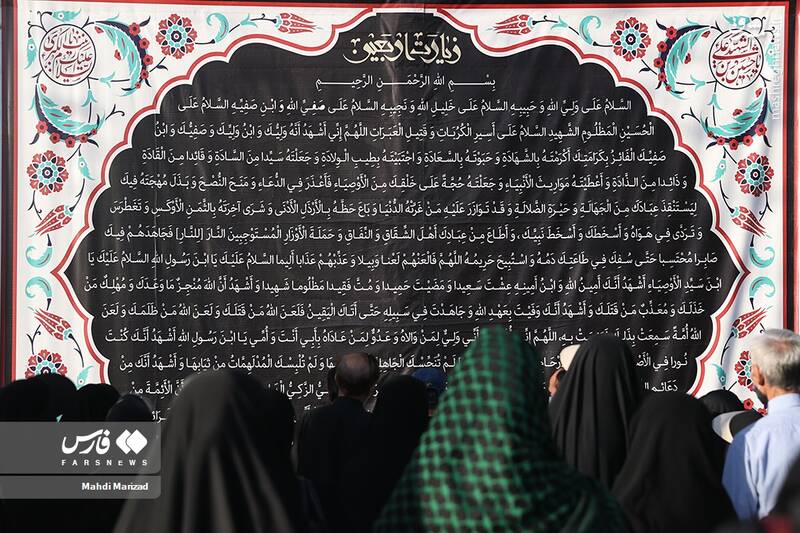 زیارت اربعین
بِسْـمِ اللهِ الرَّحْمَـنِ الرَّحِیمِ
السَّلامُ عَلَى وَلِيِّ اللهِ وَ حَبِيبِهِ السَّلامُ عَلَى خَلِيلِ اللهِ وَ نَجِيبِهِ السَّلامُ عَلَى صَفِيِّ اللهِ وَ ابْنِ صَفِيِّهِ السَّلامُ عَلَى
الْحُسَيْنِ الْمَظْلُومِ الشَّهِيدِ السَّلامُ عَلَى أَسِيرِ الْكُرُبَاتِ وَ قَتِيلِ الْعَبَرَاتِ اللَّهُمَّ إِنِّي أَشْهَدُ أَنَّهُ وَلِيُّكَ وَ ابْنُ وَلِيِّكَ وَ صَفِيُّكَ وَ ابْنُ
صَفِيِّكَ الْفَائِزُ بِكَرَامَتِكَ أَكْرَمْتَهُ بِالشَّهَادَةِ وَ حَبَوْتَهُ بِالسَّعَادَةِ وَ اجْتَبَيْتَهُ بِطِيبِ الْوِلادَةِ وَ جَعَلْتَهُ سَيِّدا مِنَ السَّادَةِ وَ قَائِدا مِنَ الْقَادَةِ
وَ ذَائِدا مِنَ الذَّادَةِ وَ أَعْطَيْتَهُ مَوَارِيثَ الْأَنْبِيَاءِ وَ جَعَلْتَهُ حُجَّةً عَلَى خَلْقِكَ مِنَ الْأَوْصِيَاءِ فَأَعْذَرَ فِي الدُّعَاءِ وَ مَنَحَ النُّصْحَ وَ بَذَلَ مُهْجَتَهُ فِيكَ
لِيَسْتَنْقِذَ عِبَادَكَ مِنَ الْجَهَالَةِ وَ حَيْرَةِ الضَّلالَةِ وَ قَدْ تَوَازَرَ عَلَيْهِ مَنْ غَرَّتْهُ الدُّنْيَا وَ بَاعَ حَظَّهُ بِالْأَرْذَلِ الْأَدْنَى وَ شَرَى آخِرَتَهُ بِالثَّمَنِ الْأَوْكَسِ وَ تَغَطْرَسَ
وَ تَرَدَّى فِي هَوَاهُ وَ أَسْخَطَكَ وَ أَسْخَطَ نَبِيَّكَ ، وَ أَطَاعَ مِنْ عِبَادِكَ أَهْلَ الشِّقَاقِ وَ النِّفَاقِ وَ حَمَلَةَ الْأَوْزَارِ الْمُسْتَوْجِبِينَ النَّارَ [لِلنَّارِ] فَجَاهَدَهُمْ فِيكَ
صَابِرا مُحْتَسِبا حَتَّى سُفِكَ فِي طَاعَتِكَ دَمُهُ وَ اسْتُبِيحَ حَرِيمُهُ اللَّهُمَّ فَالْعَنْهُمْ لَعْنا وَبِيلا وَ عَذِّبْهُمْ عَذَابا أَلِيما السَّلامُ عَلَيْكَ يَا ابْنَ رَسُولِ اللهِ السَّلامُ عَلَيْكَ يَا
ابْنَ سَيِّدِ الْأَوْصِيَاءِ أَشْهَدُ أَنَّكَ أَمِينُ اللهِ وَ ابْنُ أَمِينِهِ عِشْتَ سَعِيدا وَ مَضَيْتَ حَمِيدا وَ مُتَّ فَقِيدا مَظْلُوما شَهِيدا وَ أَشْهَدُ أَنَّ اللهَ مُنْجِزٌ مَا وَعَدَكَ وَ مُهْلِكٌ مَنْ
خَذَلَكَ وَ مُعَذِّبٌ مَنْ قَتَلَكَ وَ أَشْهَدُ أَنَّكَ وَفَيْتَ بِعَهْدِ اللهِ وَ جَاهَدْتَ فِي سَبِيلِهِ حَتَّى أَتَاكَ الْيَقِينُ فَلَعَنَ اللهُ مَنْ قَتَلَكَ وَ لَعَنَ اللهُ مَنْ ظَلَمَكَ وَ لَعَنَ
اللهُ أُمَّةً سَمِعَتْ بِذَلِكَ فَرَضِيَتْ بِهِ، اللَّهُمَّ إِنِّي أُشْهِدُكَ أَنِّي وَلِيٌّ لِمَنْ وَالاهُ وَ عَدُوٌّ لِمَنْ عَادَاهُ بِأَبِي أَنْتَ وَ أُمِّي يَا ابْنَ رَسُولِ اللهِ أَشْهَدُ أَنَّكَ كُنْتَ
نُورا فِي الْأَصْلابِ لَمْ تُنَجِّسْكَ الْجَاهِلِيَّةُ وَ لَمْ تُلْبِسْكَ الْمُدْلَهِمَّاتُ مِنْ ثِيَابِهَا وَ أَشْهَدُ أَنَّكَ مِنْ
دَعَائِمِ الزَّكِيُّ أَنَّ الْأَئِمَّةَ مِنْ
فارس
FARSNEWS
Mahdi Marizad